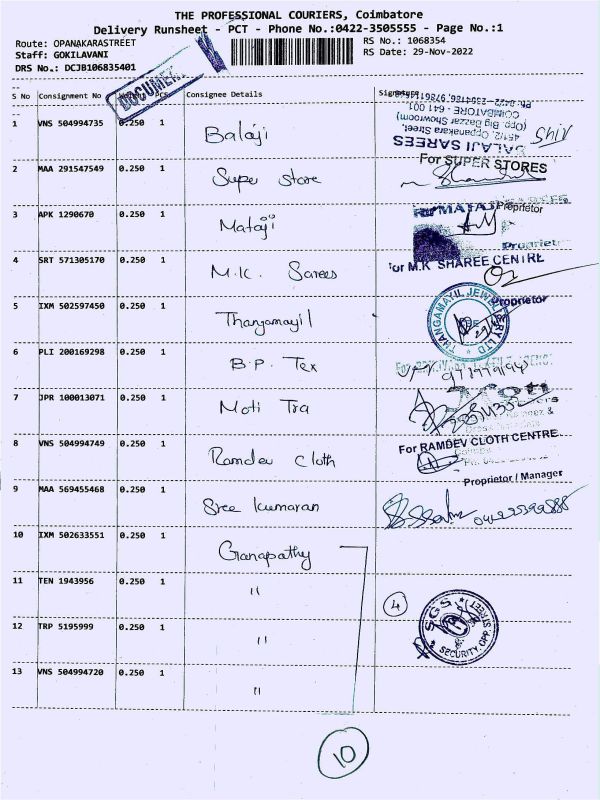 THE PROFESSIONAL COURIERS, Coimbatore
Delivery Runsheet - PCT - Phone No.:0422-3505555 - Page No.:1
Route: OPANAKARASTREET
RS No.: 1068354
Staff: GOKILAVANI
RS Date: 29-Nov-2022
DRS No.: DCJB106835401
DOCUMENT
S No Consignment No Weight PCS Consignee Details Signature
1 VNS 504994735 0.250 1 Balaji
BALAJI SAREES
45/2, Oppanakara Street,
(Opp. Big Bazzar Showroom)
COIMBATORE - 641 001
2 MAA 291547549 0.250 1 Super Store
For SUPER STORES
Proprietor
3 APK 1290670 0.250 1 Mataji
For MATAJI
Proprietor
4 SRT 571305170 0.250 1 M.K. Sarees
for M.K SHAREE CENTRE
Proprietor
5 IXM 502597450 0.250 1 Thangamayil
THANGAMAYIL JEWELLERY LTD
6 PLI 200169298 0.250 1 B.P. Tex
7 JPR 100013071 0.250 1 Moti Tra
Moti
8 VNS 504994749 0.250 1 Ramdev Cloth
For RAMDEV CLOTH CENTRE
Proprietor / Manager
9 MAA 569455468 0.250 1 Sree Kumaran
10 IXM 502633551 0.250 1 Ganapathy
11 TEN 1943956 0.250 1 "
4
SGS
SECURITY
12 TRP 5195999 0.250 1 "
13 VNS 504994720 0.250 1 "
10